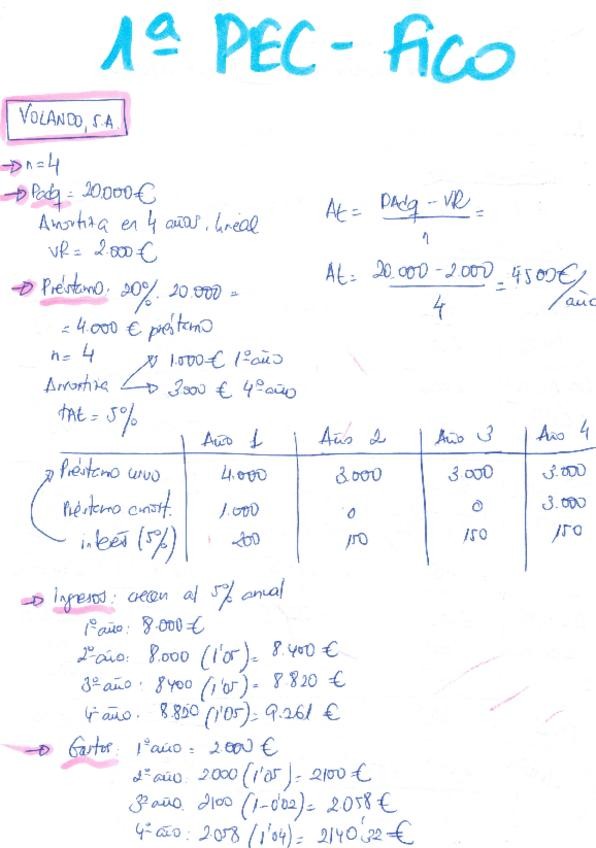 1ª PEC - FICO
VOLANDO, S.A.
→ n=4
→ Padq = 20.000€
Amortiza en 4 años. lineal
VR = 2.000€
At = PAdq - VR =
n
At = 20.000 - 2.000 = 4500€/año
4
→ Préstamo: 20%. 20.000 =
= 4.000 € préstamo
n = 4
1.000€ 1º año
Amortiza
3000 € 4º año
TAE = 5%
Año 1 Año 2 Año 3 Año 4
Préstamo vivo 4.000 3.000 3.000 3.000
Préstamo amort. 1.000 0 0 3.000
interés (5%) 200 150 150 150
→ Ingresos: crecen al 5% anual
1º año: 8.000€
2º año: 8.000 (1'05) = 8.400 €
3º año: 8400 (1'05) = 8820 €
4º año: 8.820 (1'05) = 9.261 €
→ Gastos: 1º año = 2.000 €
2º año: 2000 (1'05) = 2100€
3º año. 2100 (1-0'02) = 2058€
4º año: 2.058 (1'04) = 2140'32€